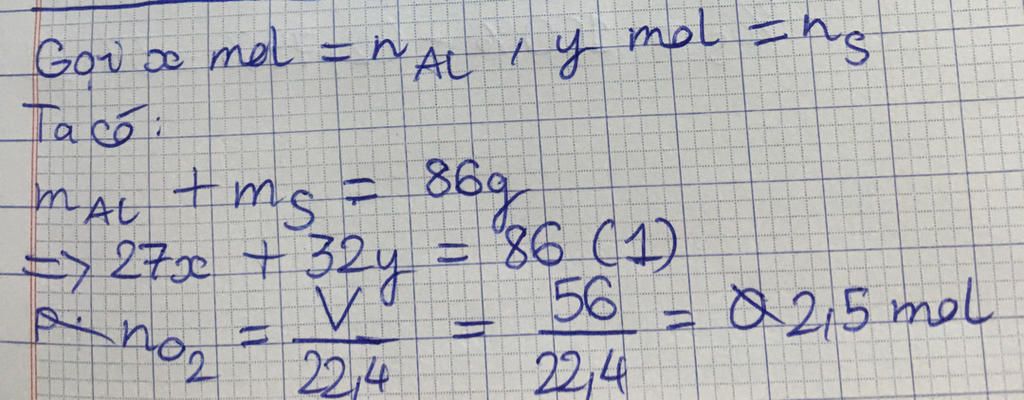 Gọi x mol = n Al, y mol = n S
Ta có:
m Al + m S = 86g
=> 27x + 32y = 86 (1)
n O2 = V/22,4 = 56/22,4 = 2,5 mol